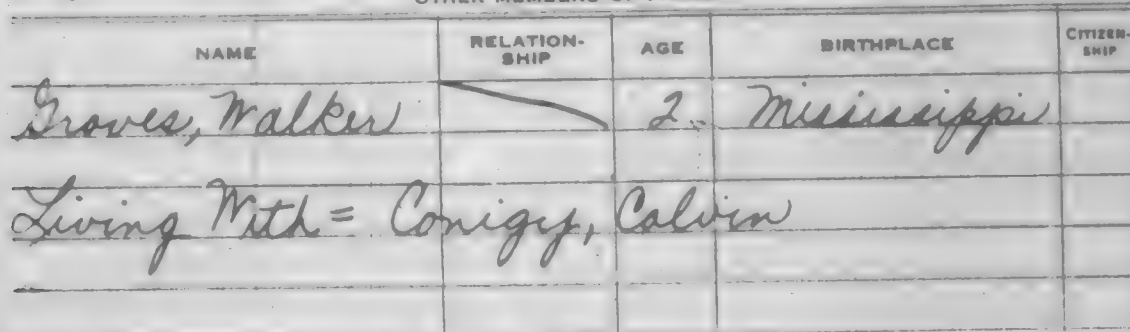 OTHER MEMBERS OF
NAME RELATION-SHIP AGE BIRTHPLACE CITIZEN-SHIP
Graves, Walker 2. Mississippi
Living With = Conigy, Calvin